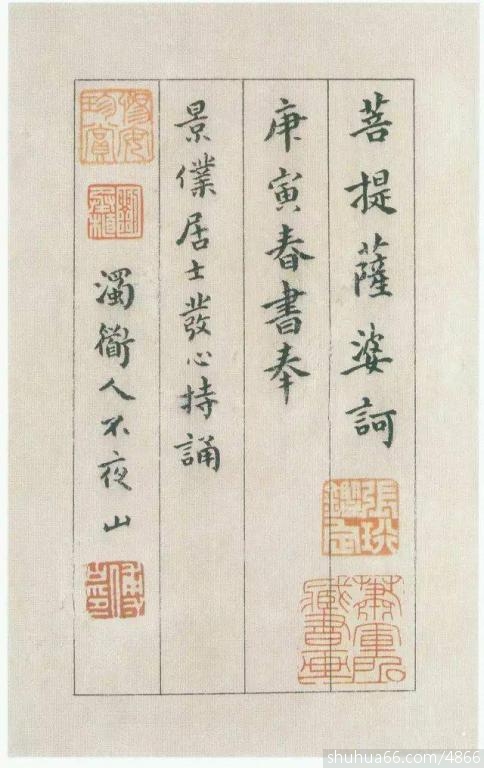 菩提薩婆訶
庚寅春書奉
景僕居士發心持誦
濁衜人不夜山
shuhua66.com/4866